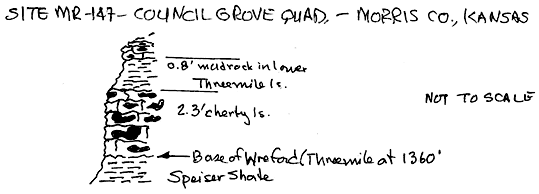 SITE MR-147- COUNCIL GROVE QUAD, - MORRIS CO., KANSAS
0.8' mudrock in lower
Threemile ls.
2.3' cherty ls.
NOT TO SCALE
Base of Wreford (Threemile at 1360'
Speiser Shale